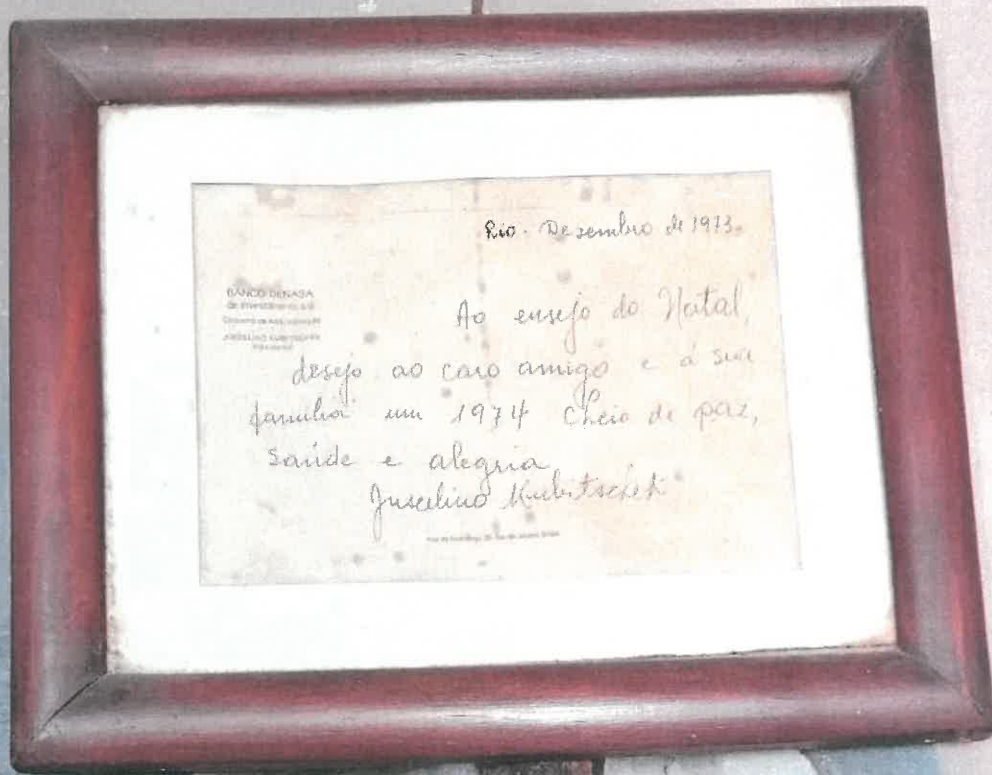 Rio. Dezembro de 1973.
BANCO DENASA
de Investimento S.A.
JUSCELINO KUBITSCHEK
Ao ensejo do Natal,
desejo ao caro amigo e á sua
familia um 1974 cheio de paz,
saúde e alegria
Juscelino Kubitschek